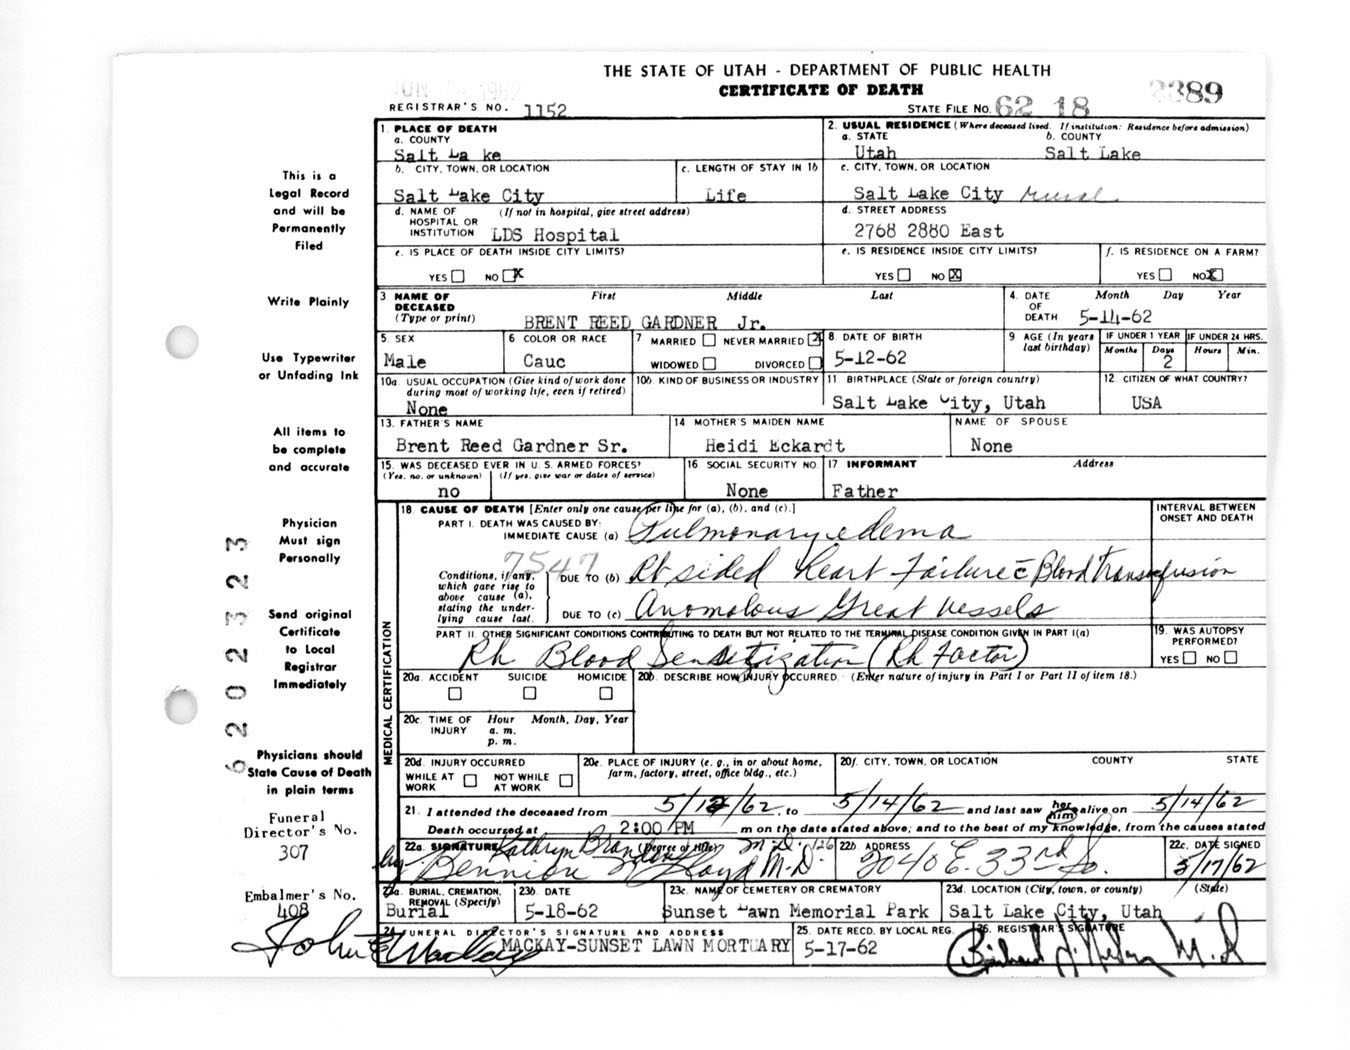 THE STATE OF UTAH - DEPARTMENT OF PUBLIC HEALTH
CERTIFICATE OF DEATH
REGISTRAR'S NO. 1152
STATE FILE NO. 62 18
This is a
Legal Record
and will be
Permanently
Filed
Write Plainly
Use Typewriter
or Unfading Ink
All items to
be complete
and accurate
Physician
Must sign
Personally
Send original
Certificate
to Local
Registrar
Immediately
Physicians should
State Cause of Death
in plain terms
Funeral
Director's No.
307
Embalmer's No.
408
1. PLACE OF DEATH
a. COUNTY
Salt La ke
2. USUAL RESIDENCE (Where deceased lived. If institution: Residence before admission)
a. STATE b. COUNTY
Utah Salt Lake
b. CITY, TOWN, OR LOCATION
Salt Lake City
c. LENGTH OF STAY IN 1b
Life
c. CITY, TOWN, OR LOCATION
Salt Lake City rural
d. NAME OF (If not in hospital, give street address)
HOSPITAL OR
INSTITUTION LDS Hospital
d. STREET ADDRESS
2768 2880 East
e. IS PLACE OF DEATH INSIDE CITY LIMITS?
YES NO X
e. IS RESIDENCE INSIDE CITY LIMITS?
YES NO X
f. IS RESIDENCE ON A FARM?
YES NO X
3 NAME OF First Middle Last
DECEASED
(Type or print) BRENT REED GARDNER Jr.
4. DATE Month Day Year
OF
DEATH 5-14-62
5. SEX
Male
6 COLOR OR RACE
Cauc
7 MARRIED NEVER MARRIED X
WIDOWED DIVORCED
8. DATE OF BIRTH
5-12-62
9 AGE (In years last birthday)
IF UNDER 1 YEAR IF UNDER 24 HRS.
Months Days Hours Min.
2
10a. USUAL OCCUPATION (Give kind of work done
during most of working life, even if retired)
None
10b. KIND OF BUSINESS OR INDUSTRY
11. BIRTHPLACE (State or foreign country)
Salt Lake City, Utah
12. CITIZEN OF WHAT COUNTRY?
USA
13. FATHER'S NAME
Brent Reed Gardner Sr.
14 MOTHER'S MAIDEN NAME
Heidi Eckardt
NAME OF SPOUSE
None
15. WAS DECEASED EVER IN U.S. ARMED FORCES?
(Yes, no, or unknown) (If yes, give war or dates of service)
no
16. SOCIAL SECURITY NO.
None
17 INFORMANT Address
Father
18. CAUSE OF DEATH [Enter only one cause per line for (a), (b), and (c).]
PART I. DEATH WAS CAUSED BY:
IMMEDIATE CAUSE (a) Pulmonary edema
INTERVAL BETWEEN
ONSET AND DEATH
7547
Conditions, if any,
which gave rise to
above cause (a),
stating the under-
lying cause last.
DUE TO (b) Rt sided Heart Failure c Blood Transfusion
DUE TO (c) Anomolous Great Vessels
PART II. OTHER SIGNIFICANT CONDITIONS CONTRIBUTING TO DEATH BUT NOT RELATED TO THE TERMINAL DISEASE CONDITION GIVEN IN PART I(a)
Rh Blood Sensitization (Rh Factor)
19. WAS AUTOPSY
PERFORMED?
YES NO
MEDICAL CERTIFICATION
20a. ACCIDENT SUICIDE HOMICIDE
20b. DESCRIBE HOW INJURY OCCURRED. (Enter nature of injury in Part I or Part II of item 18.)
20c. TIME OF Hour Month, Day, Year
INJURY a. m.
p. m.
20d. INJURY OCCURRED
WHILE AT WORK NOT WHILE AT WORK
20e. PLACE OF INJURY (e. g., in or about home,
farm, factory, street, office bldg., etc.)
20f. CITY, TOWN, OR LOCATION COUNTY STATE
21. I attended the deceased from 5/12/62, to 5/14/62 and last saw her him alive on 5/14/62
Death occurred at 2:00 PM m on the date stated above; and to the best of my knowledge, from the causes stated
22a. SIGNATURE (Degree or title) M.D.
by Bennion Lloyd M.D.
22b. ADDRESS
2040 E. 33rd So.
22c. DATE SIGNED
5/17/62
23a. BURIAL, CREMATION,
REMOVAL (Specify)
Burial
23b. DATE
5-18-62
23c. NAME OF CEMETERY OR CREMATORY
Sunset Lawn Memorial Park
23d. LOCATION (City, town, or county) (State)
Salt Lake City, Utah
24. FUNERAL DIRECTOR'S SIGNATURE AND ADDRESS
MACKAY-SUNSET LAWN MORTUARY
25. DATE RECD. BY LOCAL REG.
5-17-62
26. REGISTRAR'S SIGNATURE